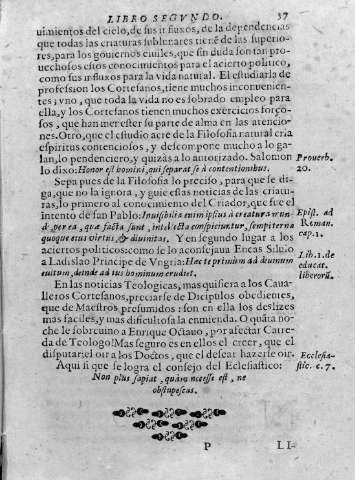 LIBRO SEGVNDO. 57
uimientos del cielo, de sus influxos, de la dependencias
que todas las criaturas sublunares tienē de las superio-
res, para los gouiernos ciuiles, que sin duda son tan pro-
uechosos estos conocimientos para el acierto politico,
como sus influxos para la vida natural. El estudiarla de
profession los Cortesanos, tiene muchos inconuenien-
tes; vno, que toda la vida no es sobrado empleo para
ella, y los Cortesanos tienen muchos exercicios forço-
sos, que han menester su parte de alma en las atencio-
nes. Otro, que el estudio acre de la Filosofia natural cria
espiritus contenciosos, y descompone mucho a lo ga-
lan, lo pendenciero, y quizàs a lo autorizado. Salomon
lo dixo: Honor est homini, qui separat se à contentionibus.
Prouerb.
20.
Sepa pues de la Filosofia lo preciso, para que se di-
ga, que no la ignora, y guie estas noticias de las criatu-
ras, lo primero al conocimiento del Criador, que fue el
intento de san Pablo: Inuisibilia enim ipsius à creatura mun-
di, per ea, quæ facta sunt, intellecta conspiciuntur, sempiterna
quoque eius virtus, & diuinitas. Y en segundo lugar a los
aciertos politicos: como se lo aconsejaua Eneas Siluio
a Ladislao Principe de Vngria: Hæc te primùm ad diuinum
cultum, deinde ad tus hominum erudiet.
Epist. ad
Roman.
cap. 1.
Lib. 1. de
educat.
liberorū.
En las noticias Teologicas, mas quisiera a los Caua-
lleros Cortesanos, preciarse de Dicipulos obedientes,
que de Maestros presumidos: son en ella los deslizes
mas faciles, y mas dificultosa la enmienda. O quāta no-
che le sobreuino a Enrique Octauo, por afectar Cate-
da de Teologo! Mas seguro es en ellos el creer, que el
disputar; el oir a los Doctos, que el desear hazerse oir.
Aqui si que se logra el consejo del Eclesiastico:
Ecclesia-
stic. c. 7.
Non plus sapiat, quàm necesse est, ne
obstupescas.
P
LI-